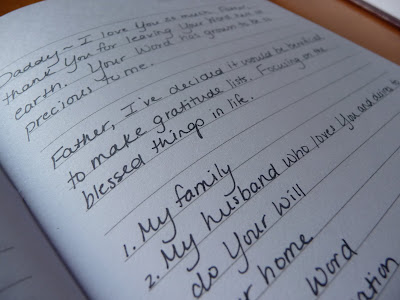 Daddy ~ I love You so much. Father,
thank You for leaving Your Word here on
earth. Your Word has grown to be so
precious to me.
Father, I've decided it would be beneficial
to make gratitude lists. Focusing on the
blessed things in life.
1. My family
2. My husband who loves You and desires to
do Your Will
home
Word